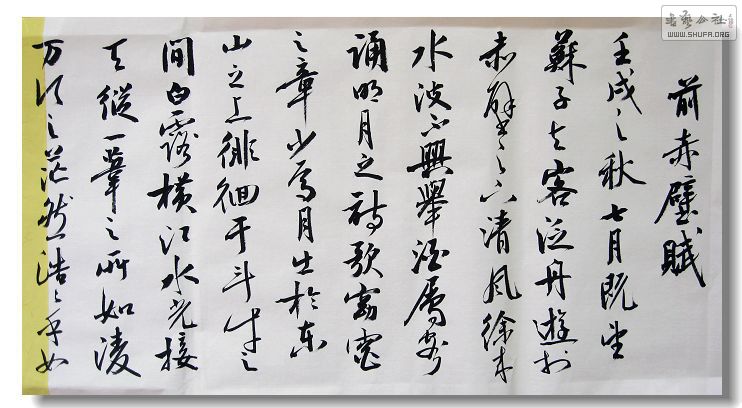 前赤壁賦
壬戌之秋七月既望
蘇子与客泛舟遊於
赤壁之下清风徐来
水波不興舉酒属客
誦明月之诗歌窈窕
之章少焉月出於东
山之上徘徊于斗牛之
間白露横江水光接
天縱一葦之所如凌
万顷之茫然浩々乎如
书艺公社
WWW.SHUFA.ORG